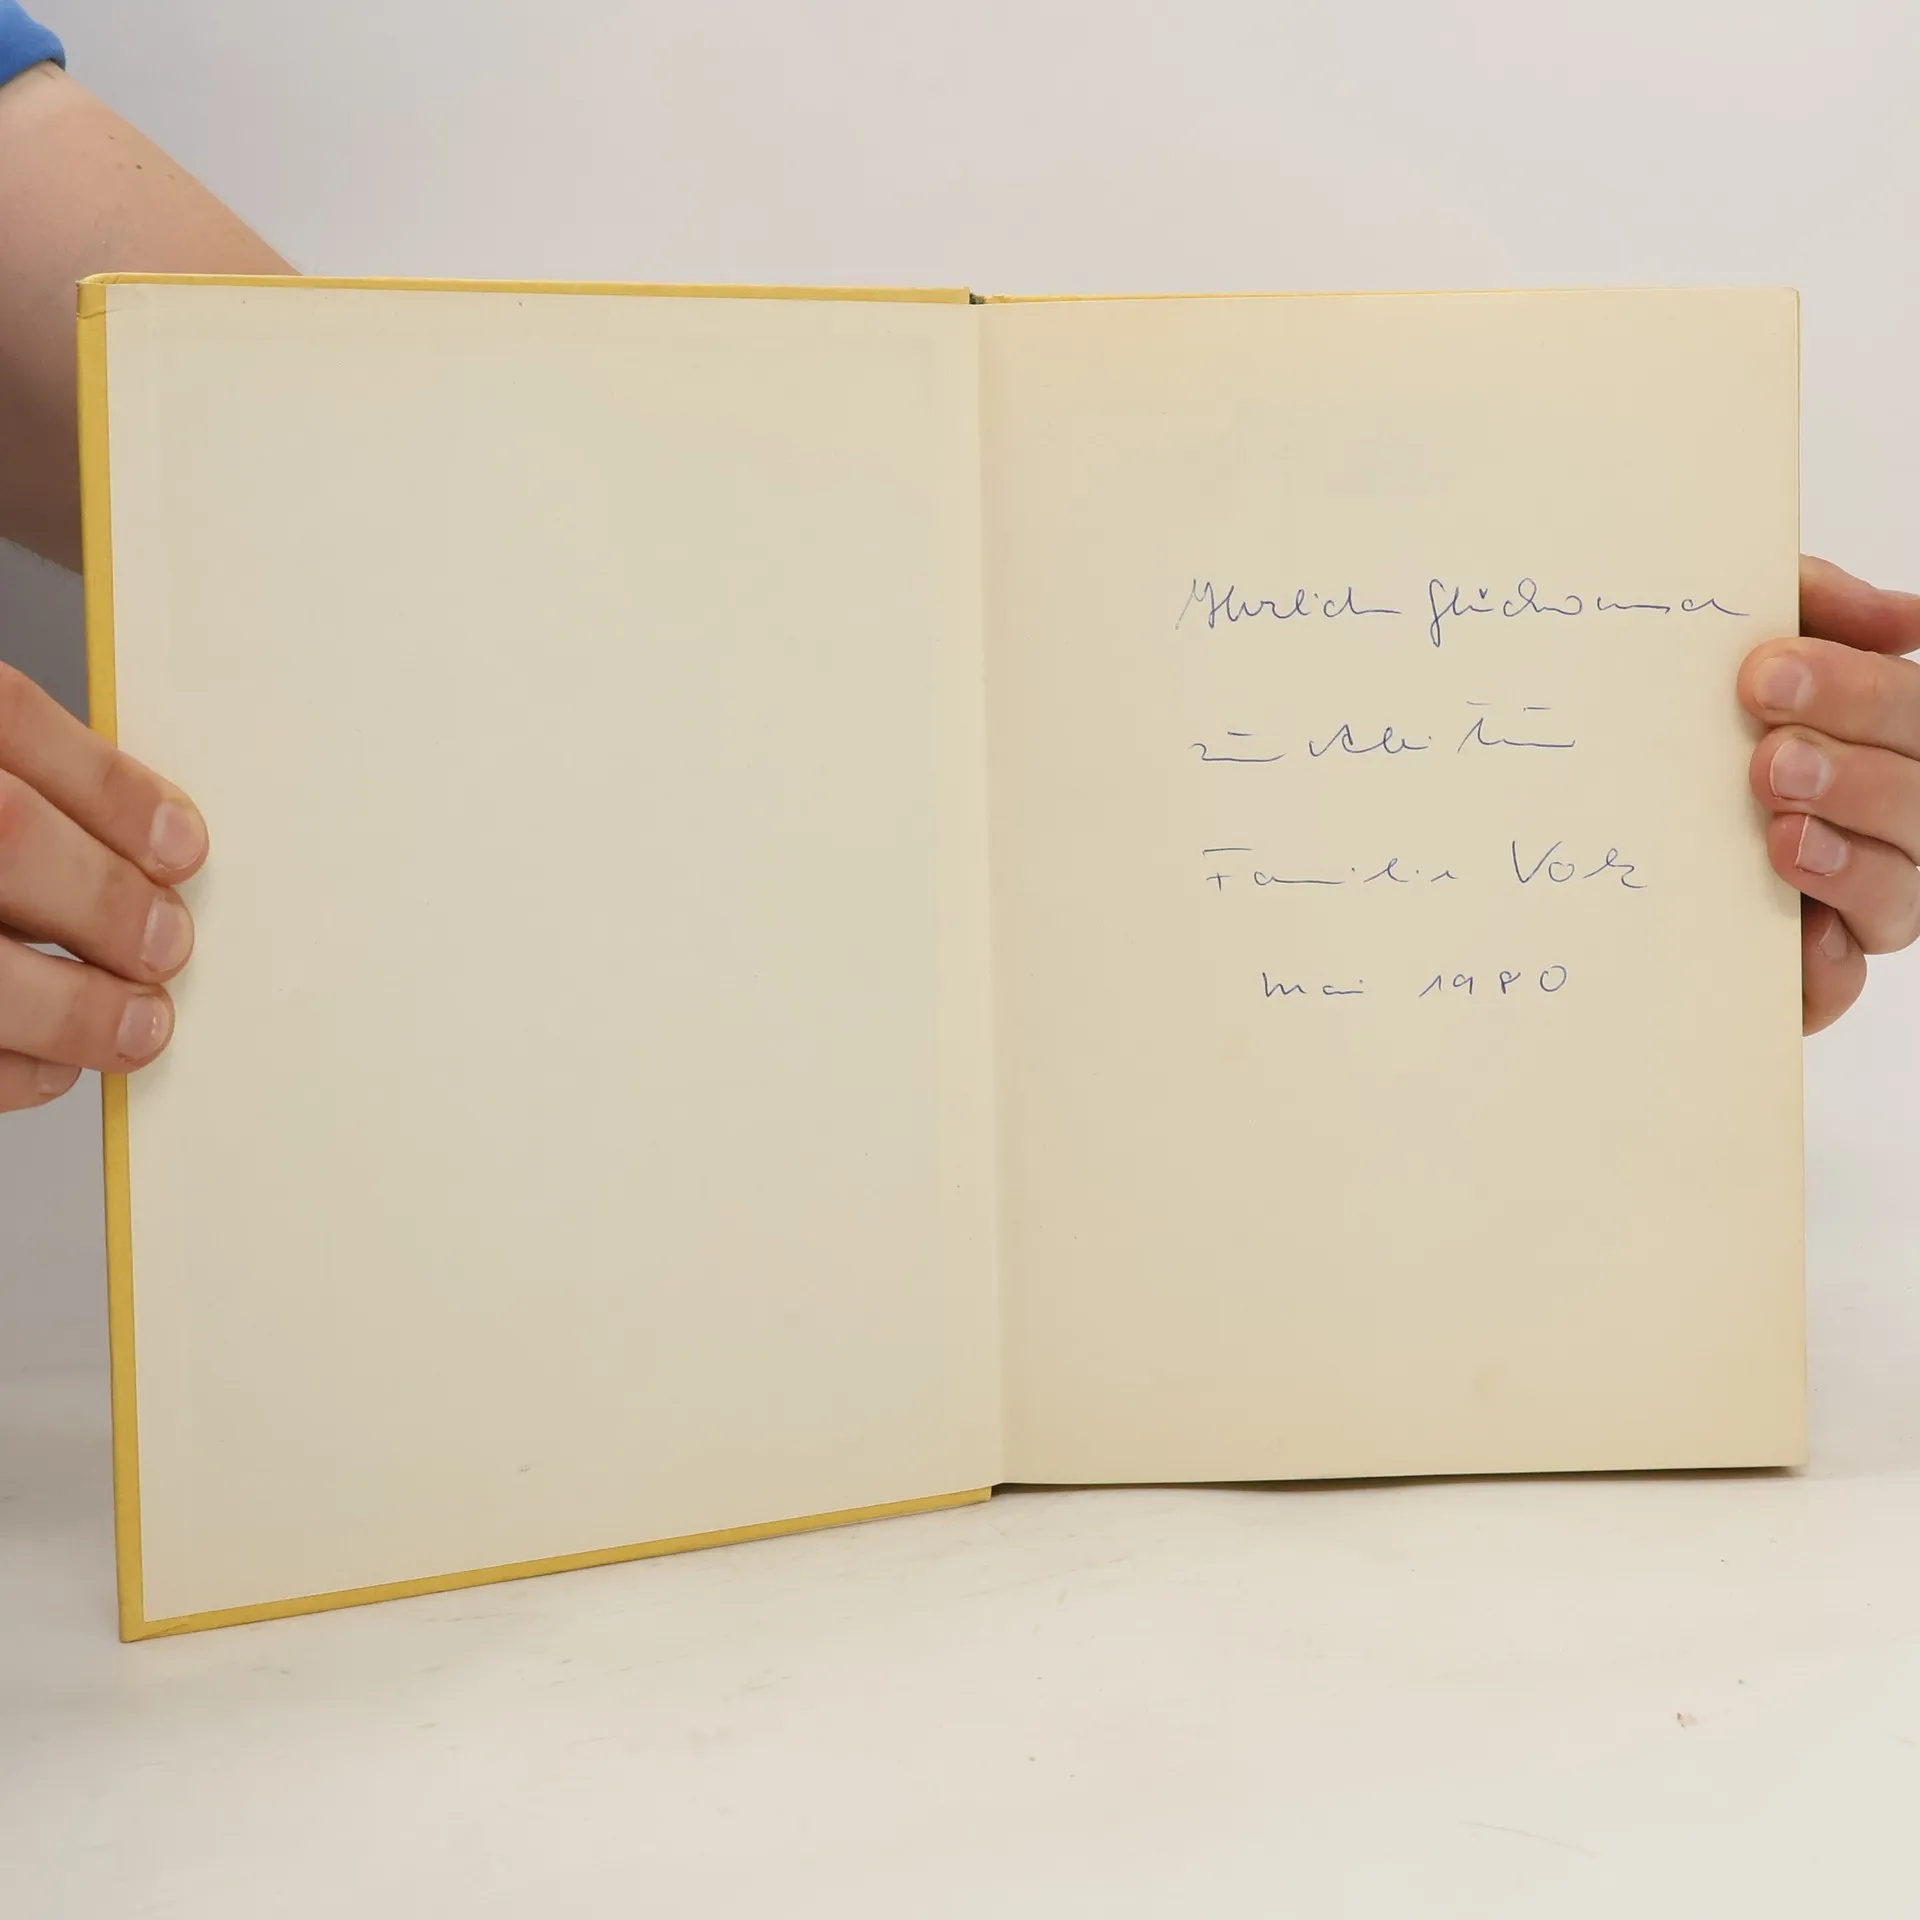 Herzlichen Glückwunsch
zum Abitur
Familie Volz
Mai 1980